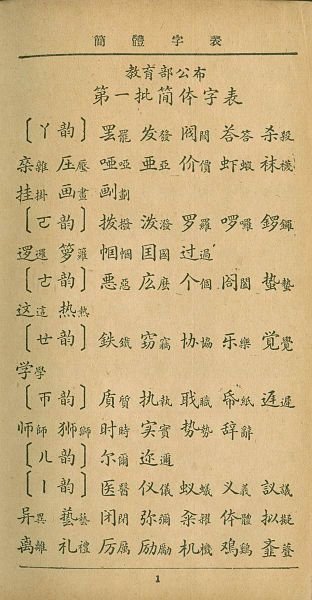 簡體字表
教育部公布
第一批简体字表
〔ㄚ韵〕罢罷 发發 阀閥 荅答 杀殺
杂雜 压壓 哑啞 亚亞 价價 虾蝦 袜襪
挂掛 画畫 劃
〔ㄛ韵〕拨撥 泼潑 罗羅 啰囉 锣鑼
逻邏 箩籮 帼幗 国國 过過
〔ㄜ韵〕恶惡 庅麼 个個 阁閣 蛰蟄
这這 热熱
〔ㄝ韵〕鉄鐵 窃竊 协協 乐樂 覚覺
学學
〔ㄭ韵〕质質 执執 职職 帋紙 迟遲
师師 狮獅 时時 实實 势勢 辞辭
〔ㄦ韵〕尔爾 迩邇
〔ㄧ韵〕医醫 仪儀 蚁蟻 义義 议議
异異 藝藝 闭閉 弥彌 籴糴 体體 拟擬
离離 礼禮 厉厲 励勵 机機 鸡鷄 韲
1